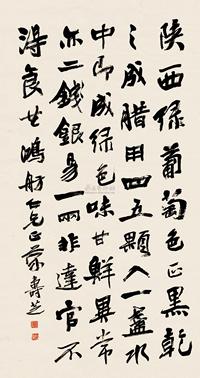 陕西绿葡萄色正黑乾
之成腊用四五颗入一盏水
中即成绿色味甘鲜异常
亦二钱银易一两非达官不
得食也鸿舫仁兄正蒙寿芝